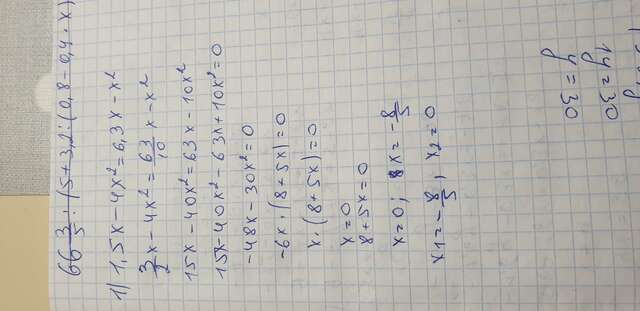 66 3/5 : (5 + 3,2 : (0,8 - 0,4 · x)
1) 1,5x - 4x² = 6,3x - x²
3/2 x - 4x² = 63/10 x - x²
15x - 40x² = 63x - 10x²
15x - 40x² - 63x + 10x² = 0
-48x - 30x² = 0
-6x · (8 + 5x) = 0
x · (8 + 5x) = 0
x = 0
8 + 5x = 0
x = 0; x = - 8/5
x1 = - 8/5, x2 = 0
1y = 30
y = 30